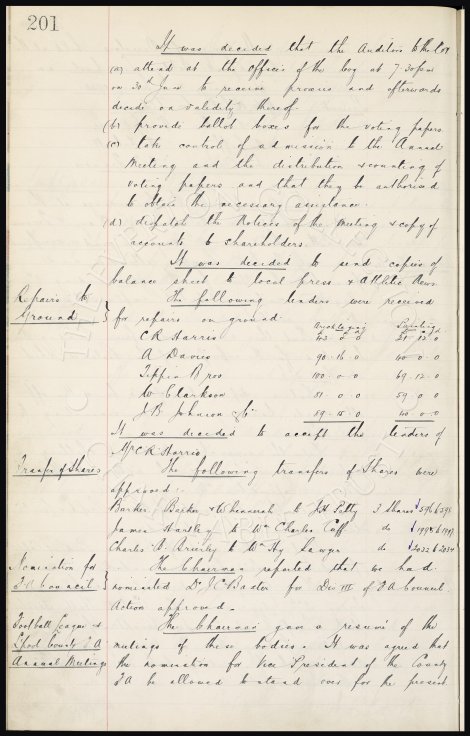 201
It was decided that the Auditors be asked to
(a) attend at the offices of the Coy at 7.30pm
on 30th June to receive proxies and afterwards
decide on validity thereof.
(b) provide ballot boxes for the voting papers.
(c) take control of admission to the Annual
Meeting and the distribution & counting of
voting papers and that they be authorised
to obtain the necessary assistance.
(d) dispatch the Notices of the Meeting & copy of
accounts to shareholders.
It was decided to send copies of
balance sheet to local press & Athletic News.
Repairs to
Ground
The following tenders were received
for repairs on ground.
Painting
C R Harris 43-0-0
A Davies 90-16-0 40-0-0
Tippin Bros 100-0-0 69-12-0
W Clarkson 51-0-0 59-0-0
J B Johnson 59-15-0 40-0-0
It was decided to accept the tenders of
Mr C R Harris.
Transfer of Shares
The following transfers of Shares were
approved:
Barker, Barker & to J H Patty 3 Shares
James Hartley to Wm Charles Cuff do
Charles W. Brierley to Wm Hy Sawyer do 2032 to 2034
Nomination for
F A Council
The Chairman reported that we had
nominated Dr J C Baxter for Div III of F A Council.
Action approved.
Football League &
County F A
Annual Meetings
The Chairman gave a resume of the
meetings of these bodies. It was agreed that
the nomination for Vice President of the County
F A be allowed to stand over for the present